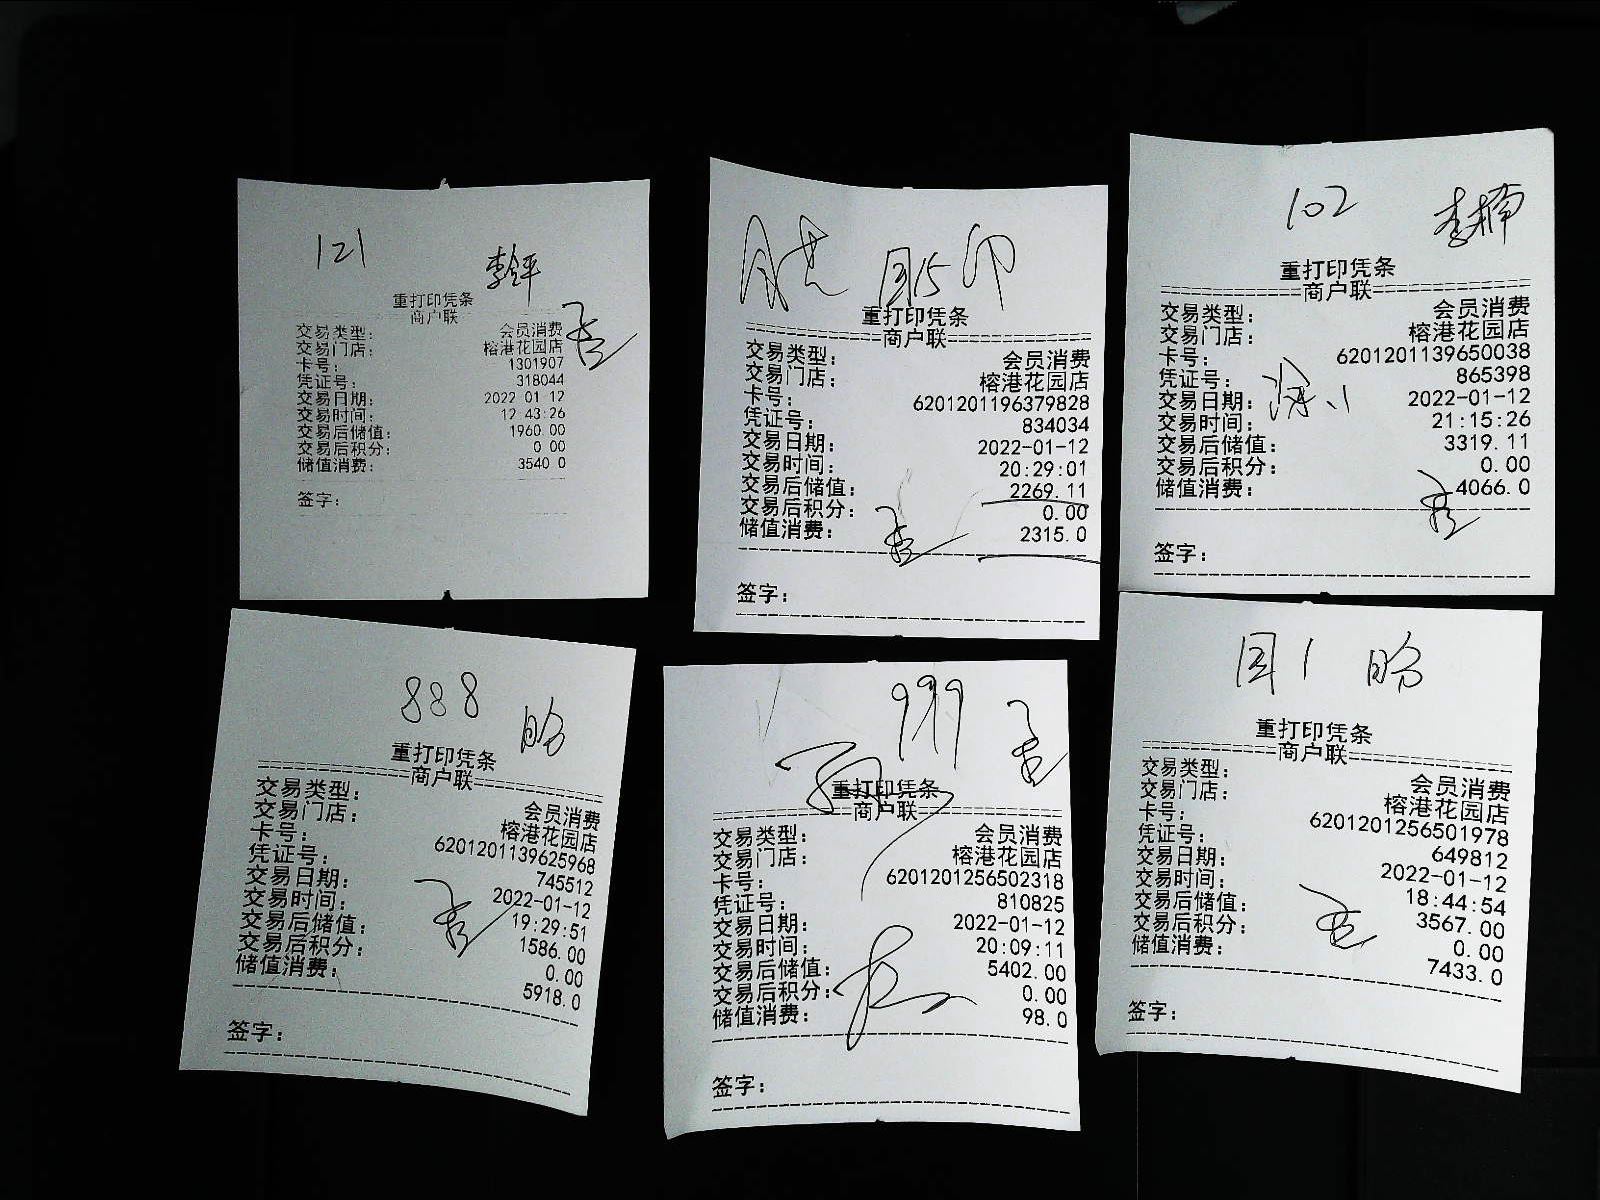 121
重打印凭条
商户联
交易类型: 会员消费
交易门店: 榕港花园店
卡号: 1301907
凭证号: 318044
交易日期: 2022 01 12
交易时间: 12 43:26
交易后储值: 1960.00
交易后积分: 0 00
储值消费: 3540 0
签字:
重打印凭条
商户联
交易类型: 会员消费
交易门店: 榕港花园店
卡号: 6201201196379828
凭证号: 834034
交易日期: 2022-01-12
交易时间: 20:29:01
交易后储值: 2269.11
交易后积分: 0.00
储值消费: 2315.0
签字:
102 李楠
重打印凭条
商户联
交易类型: 会员消费
交易门店: 榕港花园店
卡号: 6201201139650038
凭证号: 865398
交易日期: 2022-01-12
交易时间: 21:15:26
交易后储值: 3319.11
交易后积分: 0.00
储值消费: 4066.0
签字:
888
重打印凭条
商户联
交易类型: 会员消费
交易门店: 榕港花园店
卡号: 6201201139625968
凭证号: 745512
交易日期: 2022-01-12
交易时间: 19:29:51
交易后储值: 1586.00
交易后积分: 0.00
储值消费: 5918.0
签字:
999
重打印凭条
商户联
交易类型: 会员消费
交易门店: 榕港花园店
卡号: 6201201256502318
凭证号: 810825
交易日期: 2022-01-12
交易时间: 20:09:11
交易后储值: 5402.00
交易后积分: 0.00
储值消费: 98.0
签字:
重打印凭条
商户联
交易类型: 会员消费
交易门店: 榕港花园店
卡号: 6201201256501978
凭证号: 649812
交易日期: 2022-01-12
交易时间: 18:44:54
交易后储值: 3567.00
交易后积分: 0.00
储值消费: 7433.0
签字: